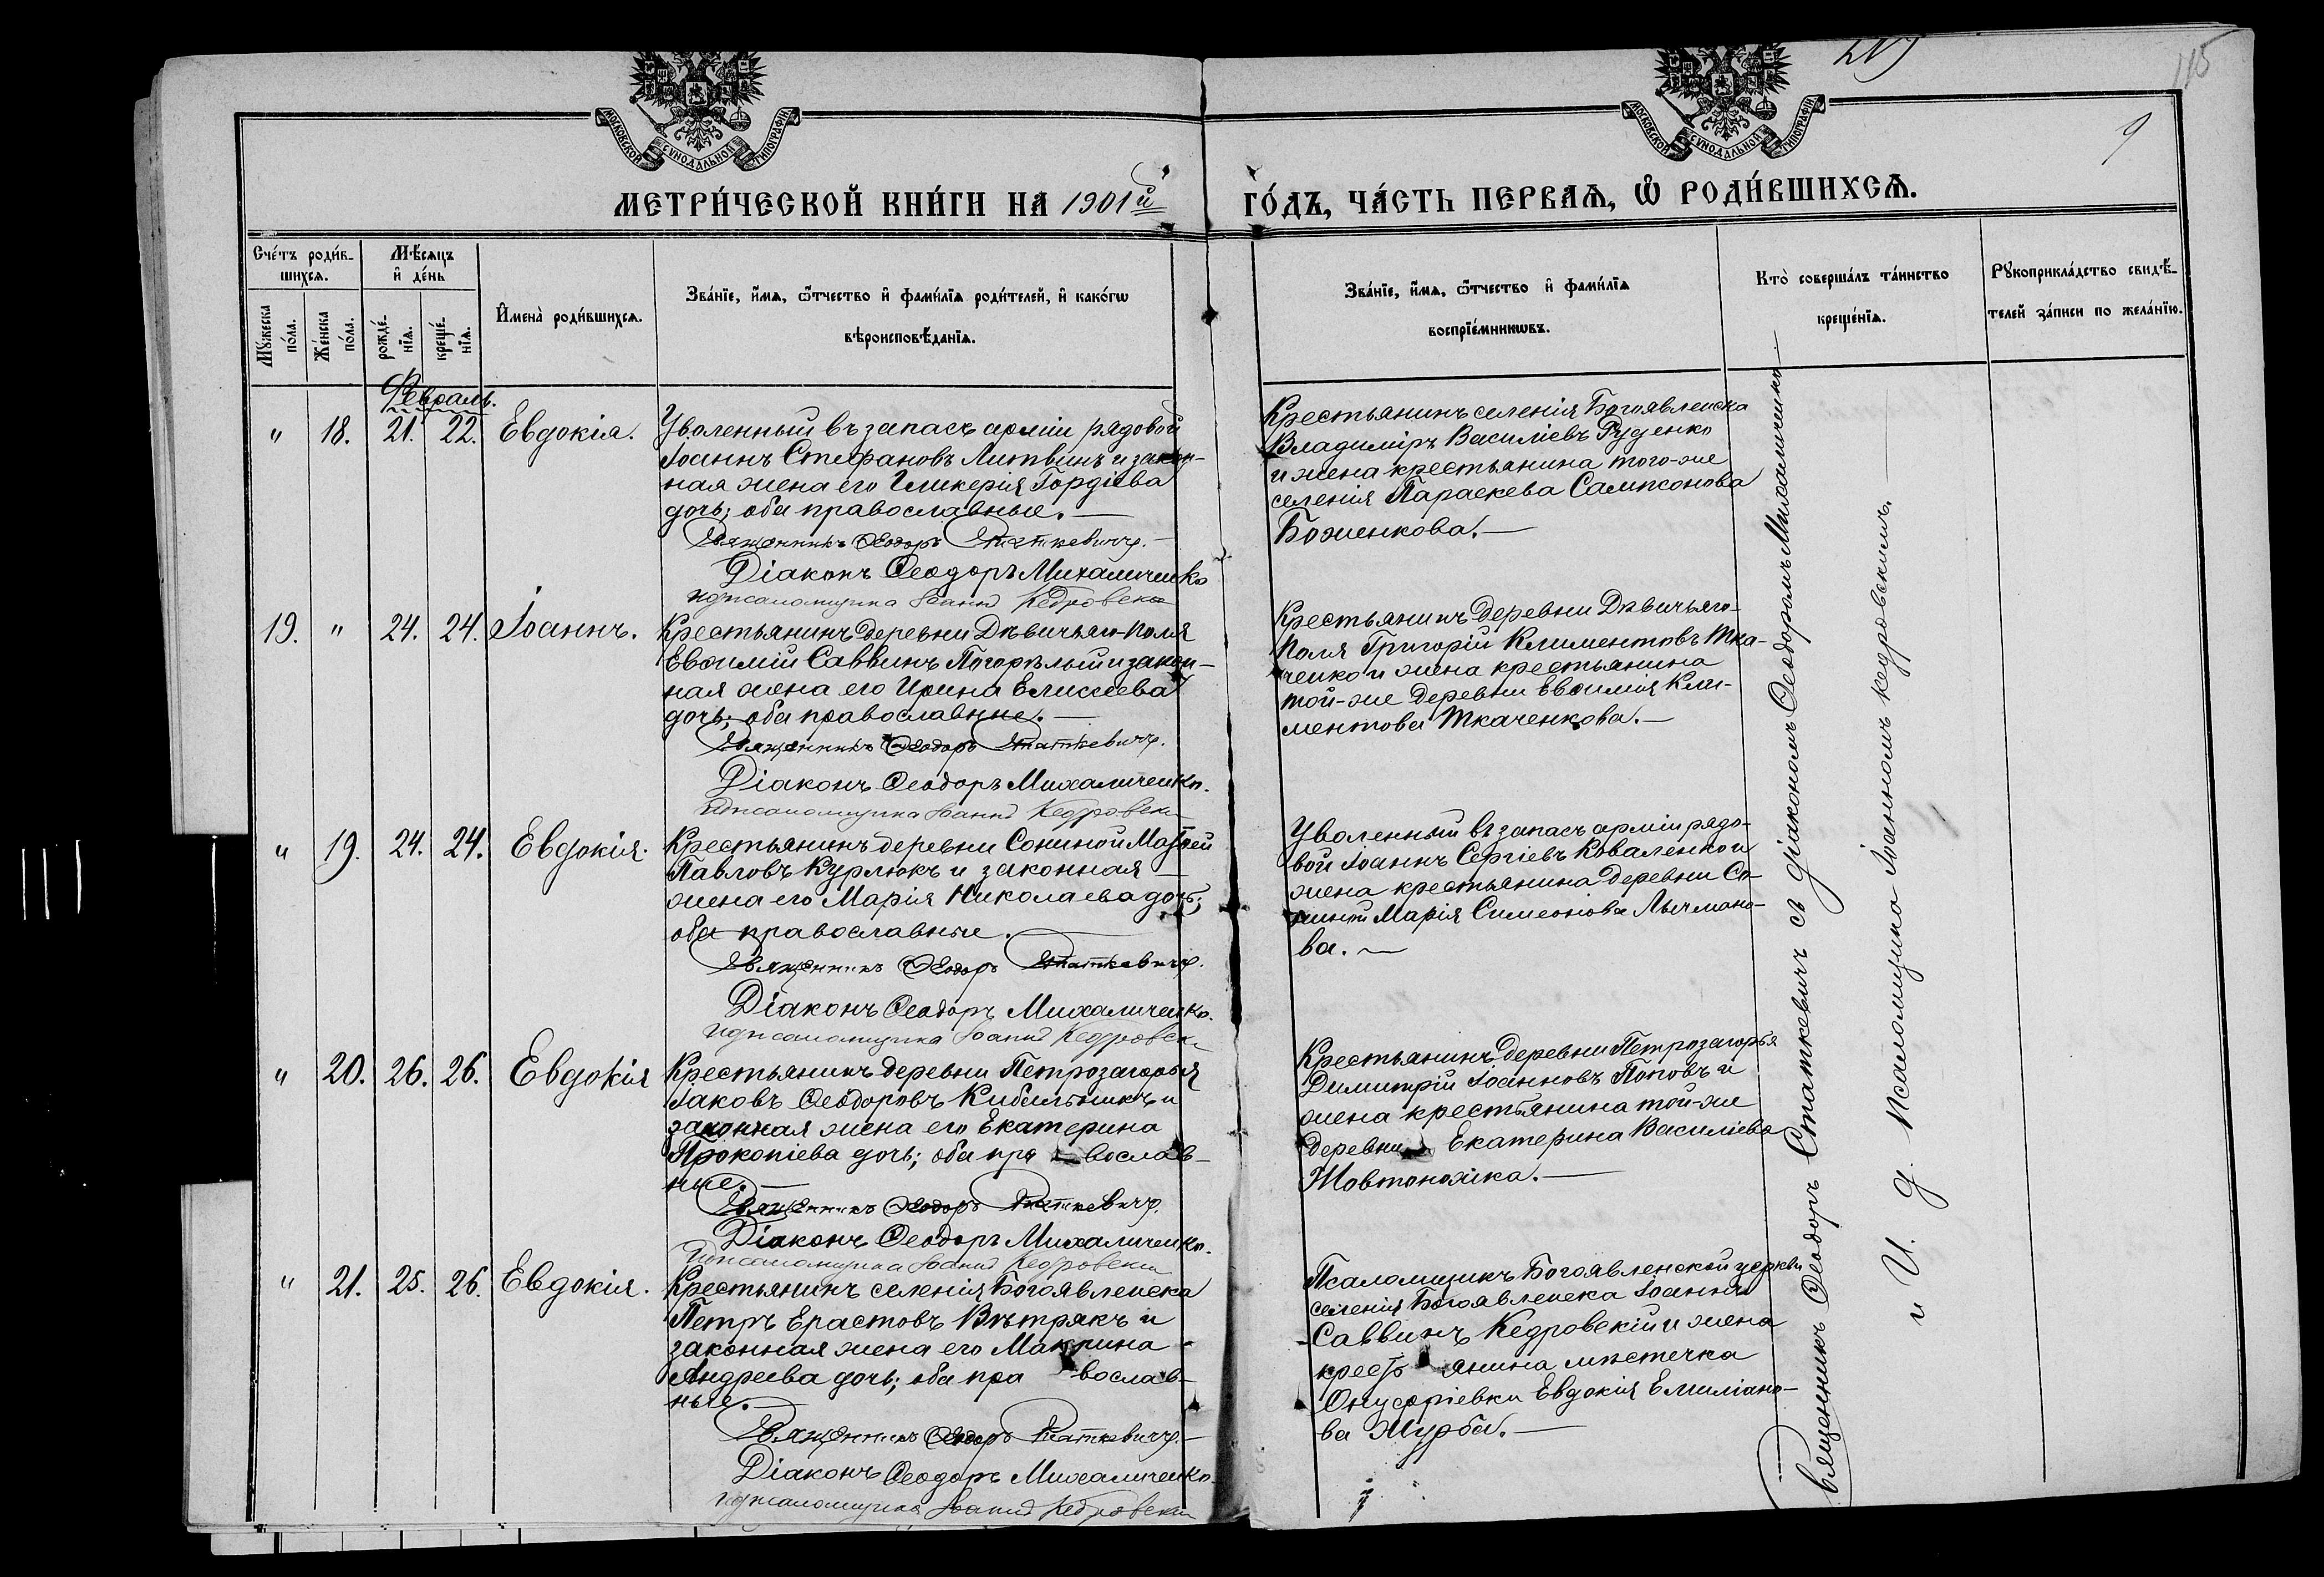 219
115
9
МОСКОВСКОЙ СѴНОДАЛЬНОЙ ТИПОГРАФІИ
МОСКОВСКОЙ СѴНОДАЛЬНОЙ ТИПОГРАФІИ
МЕТРИ́ЧЕСКОЙ КНИ́ГИ НА 1901й ГО́ДЪ, ЧА́СТЬ ПЕРВАѦ, Ѡ РОДИ́ВШИХСѦ.
Сче́тъ роди́в-
шихсѧ.
Мѣ́сѧцъ
и҆ де́нь
Мꙋ́жеска
по́ла.
Же́нска
по́ла.
рожде́-
нїѧ.
креще́-
нїѧ.
И҆мена̀ роди́вшихсѧ.
Зва́нїе, и҆́мѧ, ѻ҆́тчество и҆ фами́лїѧ роди́телей, и҆ како́гѡ
вѣроисповѣ́данїѧ.
Зва́нїе, и҆́мѧ, ѻ҆́тчество и҆ фами́лїѧ
воспрїе́мникѡвъ.
Кто̀ соверша́лъ та́инство
креще́нїѧ.
Рꙋкоприкла́дство свидѣ́-
телей за́писи по жела́нїю.
Февраль.
" 18. 21. 22. Евдокія.
Уволенный въ запасъ арміи рядовой
Іоаннъ Стефановъ Литвинъ и закон-
ная жена его Гликерія Гордіева
дочь; оба православные.—
Священникъ Ѳеодоръ Статкевичъ.
Діаконъ Ѳеодоръ Михаличенко
и д псаломщика Іоаннъ Кедровскій
Крестьянинъ селенія Богоявленска
Владиміръ Василіевъ Руденко
и жена крестьянина того-же
селенія Параскева Сампсонова
Боженкова.—
19. " 24. 24. Іоаннъ.
Крестьянинъ деревни Дѣвичьяго-Поля
Евѳимій Саввинъ Погорѣлый и закон-
ная жена его Ирина Елисеева
дочь; оба православные.—
Священникъ Ѳеодоръ Статкевичъ.
Діаконъ Ѳеодоръ Михаличенко.
и д псаломщика Іоаннъ Кедровскій
Крестьянинъ деревни Дѣвичьяго-
Поля Григорій Климентовъ Тка-
ченко и жена крестьянина
той-же деревни Евѳимія Кли-
ментова Ткаченкова.—
" 19. 24. 24. Евдокія.
Крестьянинъ деревни Сониной Матѳей
Павловъ Курлюкъ и законная
жена его Марія Николаева дочь;
оба православные.
Священникъ Ѳеодоръ Статкевичъ.
Діаконъ Ѳеодоръ Михаличенко.
и д псаломщика Іоаннъ Кедровскій
Уволенный въ запасъ арміи рядо-
вой Іоаннъ Сергіевъ Коваленко и
жена крестьянина деревни Со-
ниной Марія Симеонова Лычмано-
ва.—
" 20. 26. 26. Евдокія
Крестьянинъ деревни Петрозагорья
Іаковъ Ѳеодоровъ Кибальникъ и
законная жена его Екатерина
Прокопіева дочь; оба пра вослав-
ные.—
Священникъ Ѳеодоръ Статкевичъ.
Діаконъ Ѳеодоръ Михаличенко.
и д псаломщика Іоаннъ Кедровскій
Крестьянинъ деревни Петрозагорья
Димитрій Іоанновъ Поповъ и
жена крестьянина той-же
деревни Екатерина Василіева
Жовтоножка.—
" 21. 25. 26. Евдокія.
Крестьянинъ селенія Богоявленска
Петръ Ерастовъ Вѣтрякъ и
законная жена его Макрина
Андреева дочь; оба пра вослав-
ные.—
Священникъ Ѳеодоръ Статкевичъ.
Діаконъ Ѳеодоръ Михаличенко.
и д псаломщика Іоаннъ Кедровскій
Псаломщикъ Богоявленской церкви
селенія Богоявленска Іоаннъ
Саввинъ Кедровскій и жена
кресть янина мѣстечка
Онуфріевки Евдокія Емиліано-
ва Журба.—
Священникъ Ѳеодоръ Статкевичъ съ діакономъ Ѳеодоромъ Михаличенко
и И. д. псаломщика Іоанномъ Кедровскимъ.